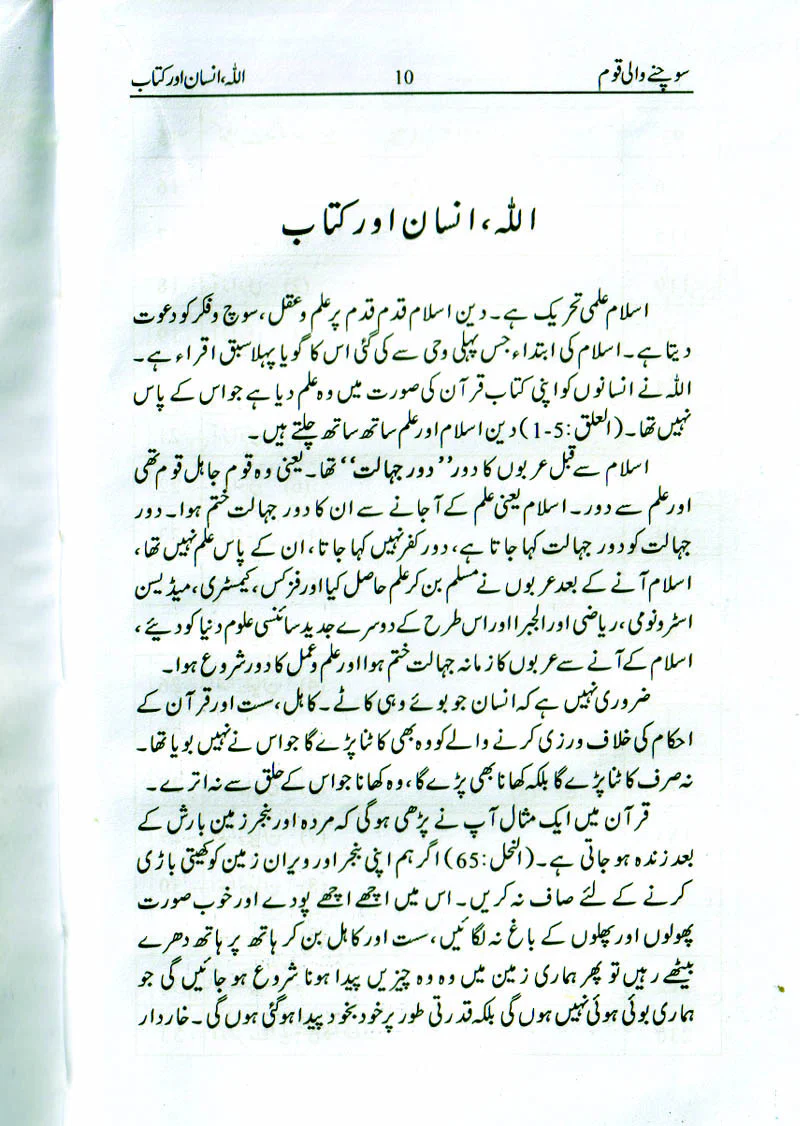 سوچنے والی قوم 10 اللہ، انسان اور کتاب
اللہ، انسان اور کتاب
اسلام علمی تحریک ہے۔ دین اسلام قدم قدم پر علم و عقل، سوچ و فکر کو دعوت
دیتا ہے۔ اسلام کی ابتداء جس پہلی وحی سے کی گئی اس کا گویا پہلا سبق اقراء ہے۔
اللہ نے انسانوں کو اپنی کتاب قرآن کی صورت میں وہ علم دیا ہے جو اس کے پاس
نہیں تھا۔ (العلق:5-1) دین اسلام اور علم ساتھ ساتھ چلتے ہیں۔
اسلام سے قبل عربوں کا دور ’’دور جہالت‘‘ تھا۔ یعنی وہ قوم جاہل قوم تھی
اور علم سے دور۔ اسلام یعنی علم کے آ جانے سے ان کا دور جہالت ختم ہوا۔ دور
جہالت کو دور جہالت کہا جاتا ہے، دور کفر نہیں کہا جاتا، ان کے پاس علم نہیں تھا،
اسلام آنے کے بعد عربوں نے مسلم بن کر علم حاصل کیا اور فزکس، کیمسٹری، میڈیسن
اسٹرونومی، ریاضی اور الجبرا اور اس طرح کے دوسرے جدید سائنسی علوم دنیا کو دیئے،
اسلام کے آنے سے عربوں کا زمانہ جہالت ختم ہوا اور علم و عمل کا دور شروع ہوا۔
ضروری نہیں ہے کہ انسان جو بوئے وہی کاٹے۔ کاہل، سست اور قرآن کے
احکام کی خلاف ورزی کرنے والے کو وہ بھی کاٹنا پڑے گا جو اس نے نہیں بویا تھا۔
نہ صرف کاٹنا پڑے گا بلکہ کھانا بھی پڑے گا، وہ کھانا جو اس کے حلق سے نہ اترے۔
قرآن میں ایک مثال آپ نے پڑھی ہوگی کہ مردہ اور بنجر زمین بارش کے
بعد زندہ ہو جاتی ہے۔ (النحل:65) اگر ہم اپنی بنجر اور ویران زمین کو کھیتی باڑی
کرنے کے لئے صاف نہ کریں۔ اس میں اچھے اچھے پودے اور خوب صورت
پھولوں اور پھلوں کے باغ نہ لگائیں، سست اور کاہل بن کر ہاتھ پر ہاتھ دھرے
بیٹھے رہیں تو پھر ہماری زمین میں وہ وہ چیزیں پیدا ہونا شروع ہو جائیں گی جو
ہماری بوئی ہوئی نہیں ہوں گی بلکہ قدرتی طور پر خود بخود پیدا ہو گئی ہوں گی۔ خاردار